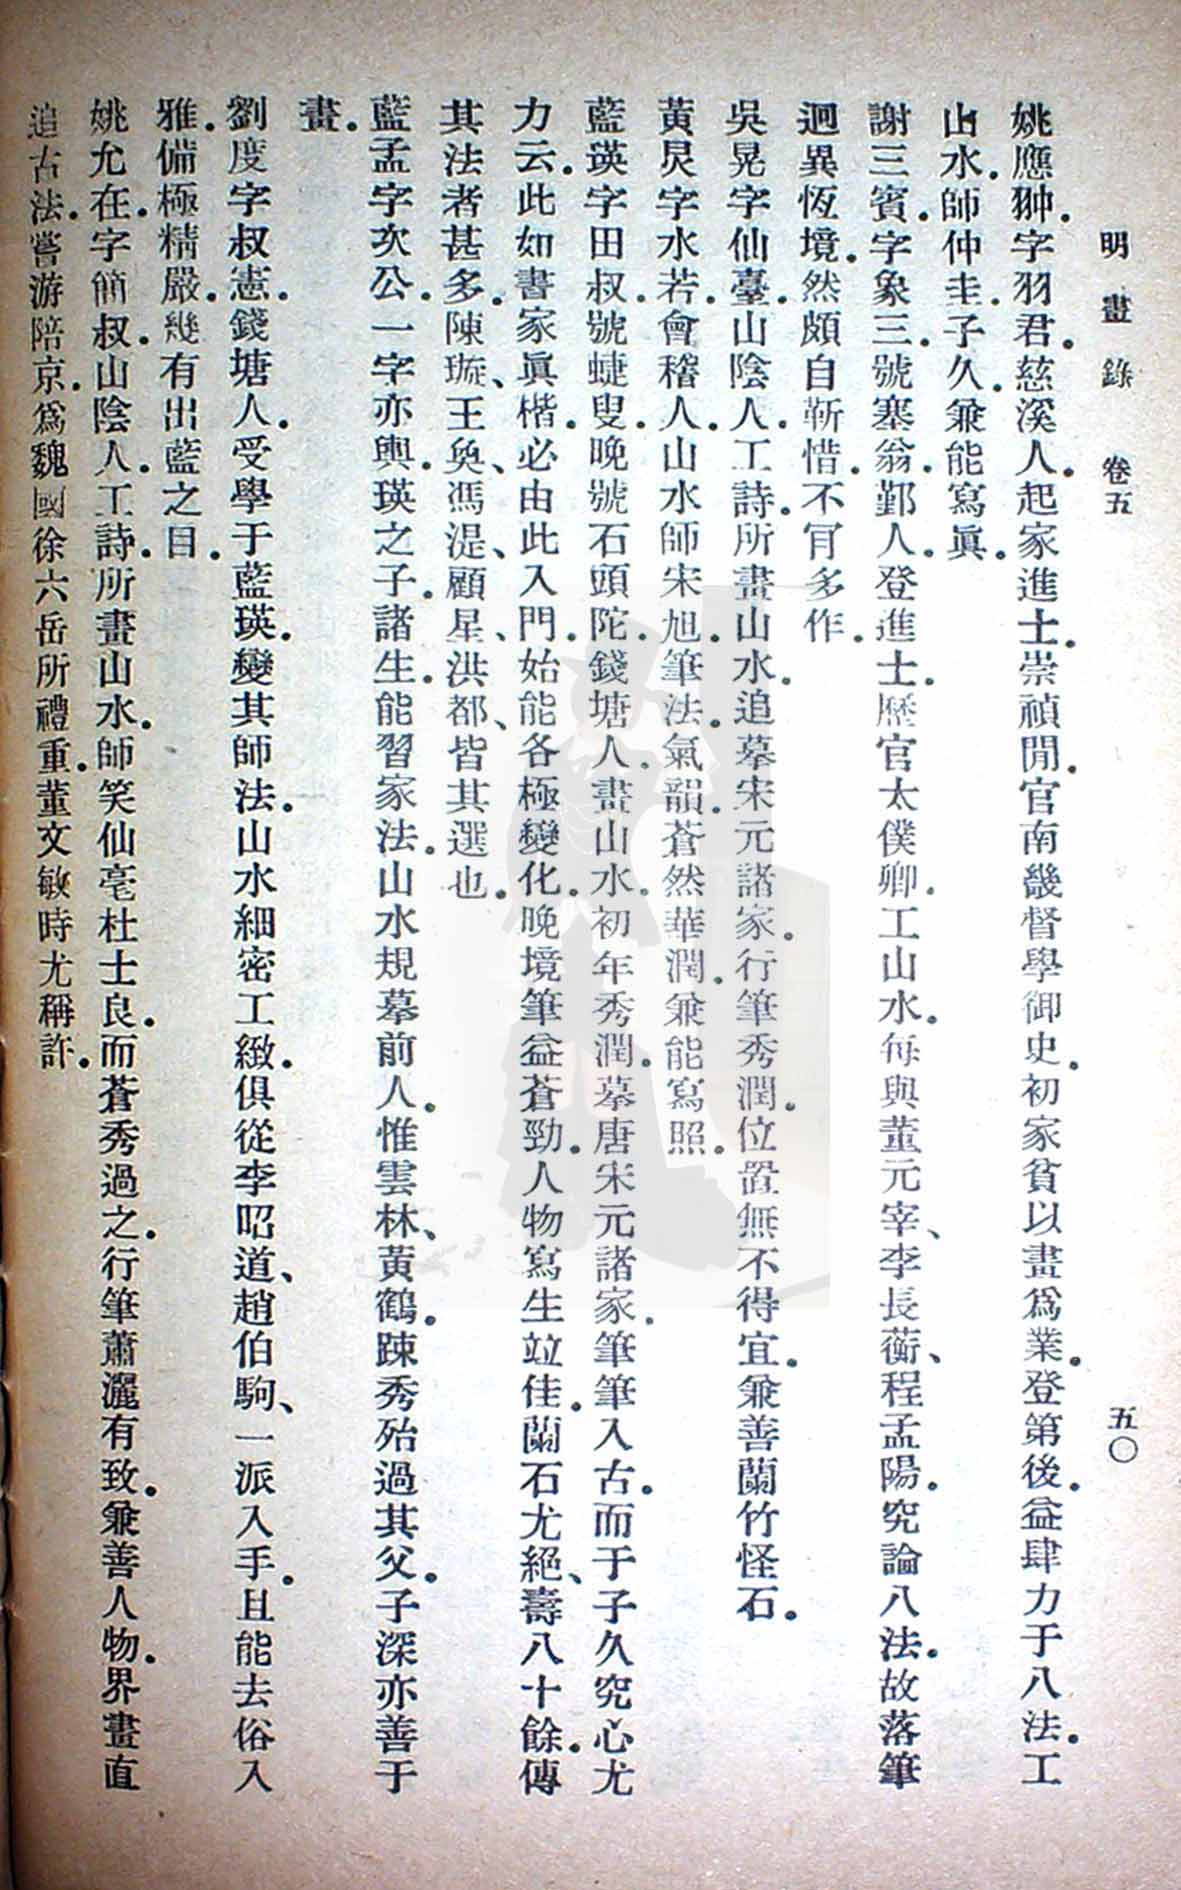 明畫錄 卷五 五〇
姚應翀。字羽君。慈溪人。起家進士。崇禎閒。官南畿督學御史。初家貧以畫爲業。登第後。益肆力于八法。工
山水。師仲圭。子久。兼能寫眞。
謝三賓。字象三。號塞翁。鄞人。登進士。歷官太僕卿。工山水。每與董元宰、李長蘅、程孟陽。究論八法。故落筆
迥異恆境。然頗自靳惜。不肎多作。
吳晃字仙臺。山陰人。工詩。所畫山水。追摹宋元諸家。行筆秀潤。位置無不得宜。兼善蘭竹怪石。
黃炅字水若。會稽人。山水師宋旭。筆法。氣韻。蒼然華潤。兼能寫照。
藍瑛字田叔。號蜨叟。晚號石頭陀。錢塘人。畫山水。初年秀潤。摹唐宋元諸家。筆筆入古。而于子久究心尤
力云。此如書家眞楷。必由此入門。始能各極變化。晚境筆益蒼勁。人物寫生竝佳。蘭石尤絕、壽八十餘。傳
其法者甚多。陳璇、王奐、馮湜、顧星、洪都、皆其選也。
藍孟字次公。一字亦輿。瑛之子。諸生。能習家法。山水規摹前人。惟雲林、黃鶴。踈秀殆過其父。子深亦善于
畫。
劉度字叔憲。錢塘人。受學于藍瑛。變其師法。山水細密工緻。俱從李昭道、趙伯駒、一派入手。且能去俗入
雅。備極精嚴。幾有出藍之目。
姚允在。字簡叔。山陰人。工詩。所畫山水。師笑仙毫杜士良。而蒼秀過之。行筆蕭灑有致。兼善人物。界畫直
追古法。嘗游陪京。爲魏國徐六岳所禮重。董文敏時尤稱許。